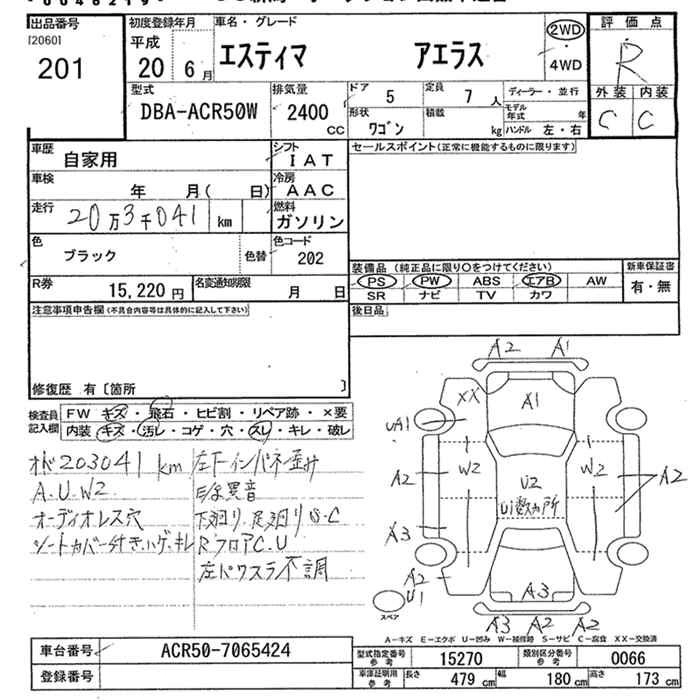 出品番号 初度登録年月 車名・グレード 評価点
[2060]
201
平成
20年 6月
エスティマ アエラス
2WD
・
4WD
R
型式 排気量 ドア 定員 ディーラー・並行 外装 内装
DBA-ACR50W 2400 CC 5 7人
モデル年式 年
C C
形状 積載
ワゴン kg ハンドル 左・右
車歴 自家用 シフト IAT セールスポイント(正常に機能するものに限ります)
車検 年 月( 日) 冷房 AAC
走行 20万3千041 km 燃料 ガソリン
色 ブラック 色替 色コード 202
装備品 (純正品に限り○をつけてください) 新車保証書
R券 15,220円 名変通知期限 月 日
PS PW ABS エアB AW 有・無
SR ナビ TV カワ
注意事項申告欄(不具合内容等は具体的に記入して下さい) 後日品
修復歴 有〔箇所 〕
検査員 FW キズ・飛石・ヒビ割・リペア跡・×要
記入欄 内装 キズ・汚レ・コゲ・穴・スレ・キレ・破レ
オド203041km 左下インパネ歪み
A.U.W2 異音
オーディオレス穴 下廻リ.足廻リS.C
シートカバー付き.ハゲ.キレ RフロアC.U
左パワスラ不調
A2 A1
XX A1
UA1
W2 W2
A2 U2 A2
U1数カ所
A3
A2
U1 A3
スペア
A3 A2 A2
A-キズ E-エクボ U-凹み W-補修跡 S-サビ C-腐食 XX-交換済
車台番号 ACR50-7065424
登録番号
型式指定番号 参考 15270 類別区分番号 参考 0066
車庫証明用 参考 長さ 479cm 幅 180cm 高さ 173cm